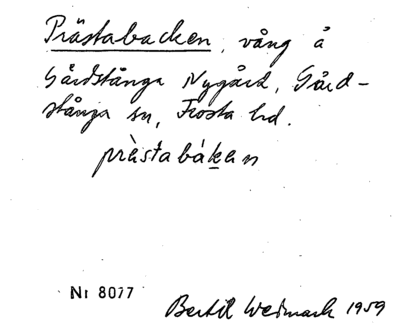 Prästabacken, vång å
Gårdstånga Nygård, Gård-
stånga sn, Frosta hd.
prästabáken
Nr 8077
Bertil Wedmark 1959